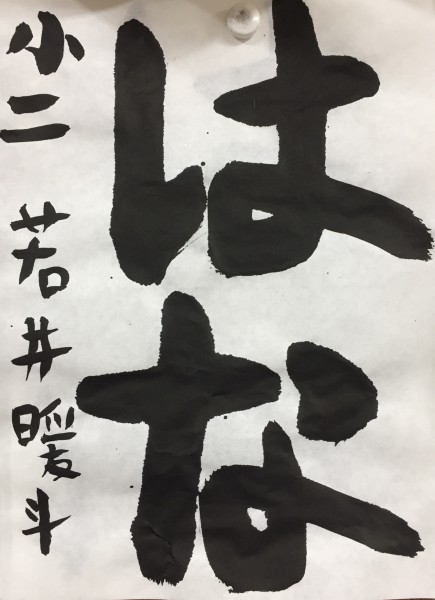 はな
小二 若井暖斗